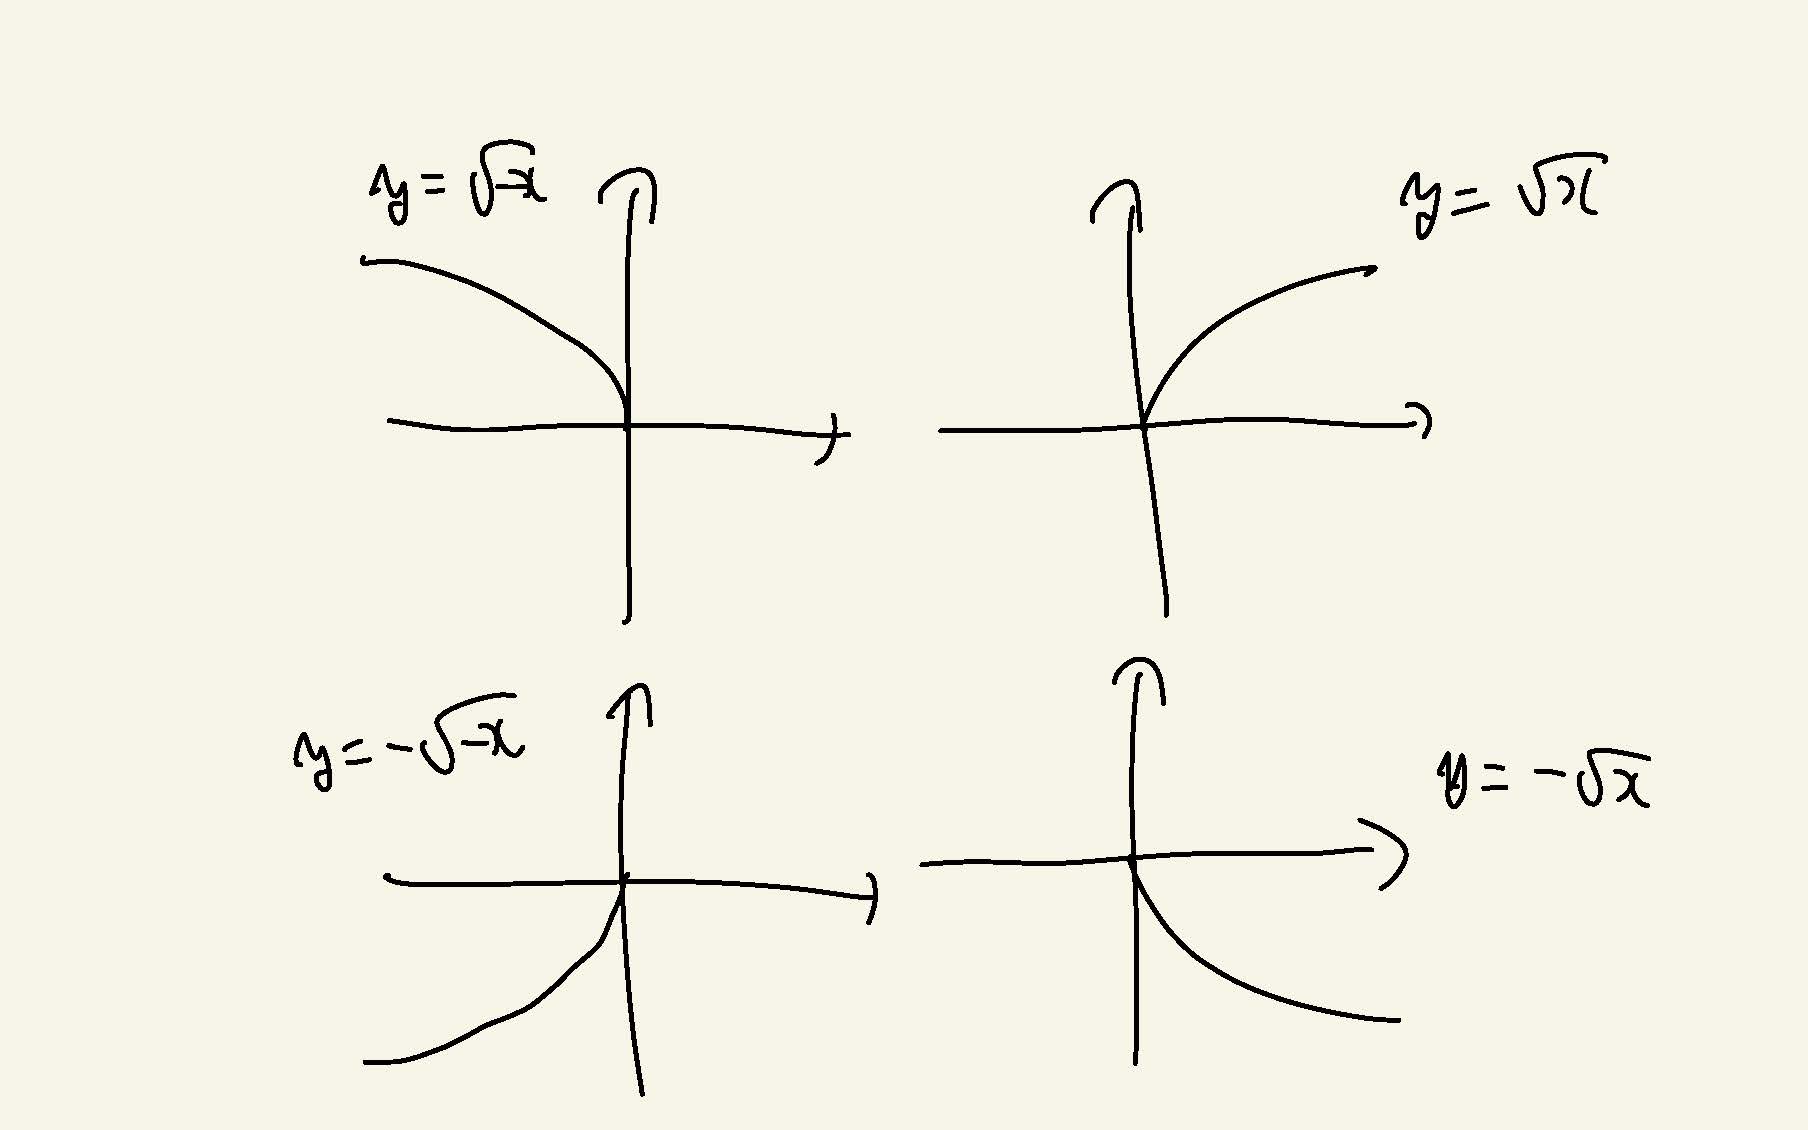 y = √-x
y = √x
y = -√-x
y = -√x